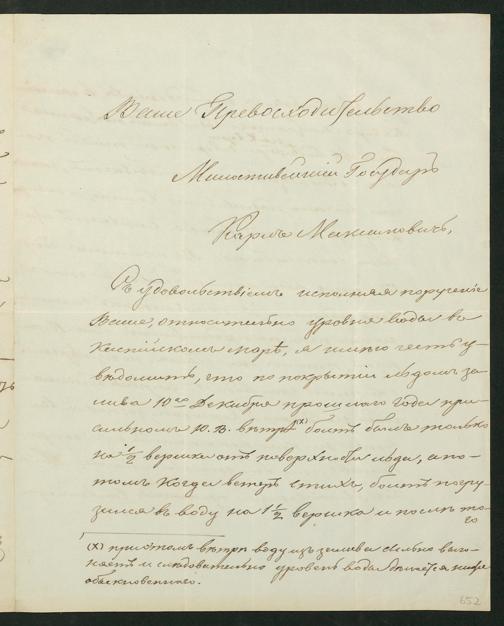 Ваше Превосходительство
Милостивейший Государь
Карлъ Максимовичь,
Съ удовольствіемъ исполняя порученіе
Ваше, относительно уровня воды въ
Каспійскомъ морѣ, я имѣю честь у-
вѣдомить, что по покрытіи льдомъ за-
лива 10го Декабря прошлаго года при
сильномъ Ю. В. вѣтрѣ (х) болтъ былъ только
на ½ вершка отъ поверхности льда, а по-
томъ когда вѣтеръ стихъ, болтъ погру-
зился въ воду на 1½ вершка и послѣ то-
го
(х) при этомъ вѣтрѣ воду изъ залива сильно выго-
няетъ и слѣдовательно уровень воды дѣлается ниже
обыкновеннаго.
652